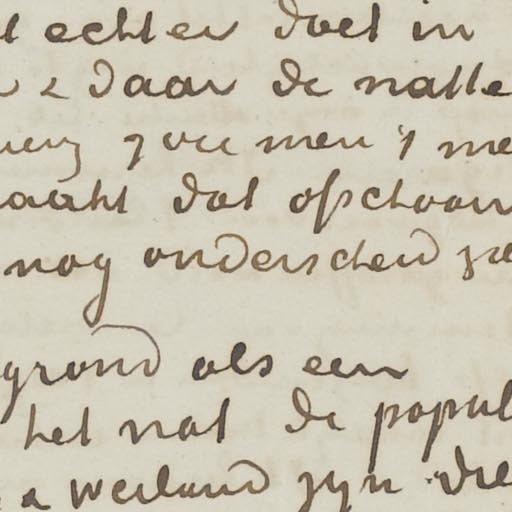 t echter doet in
& daar de natte
zoo men 't me
aakt dat ofschoon
nog onderscheid
grond als een
het nat de popul
& weiland zyn die